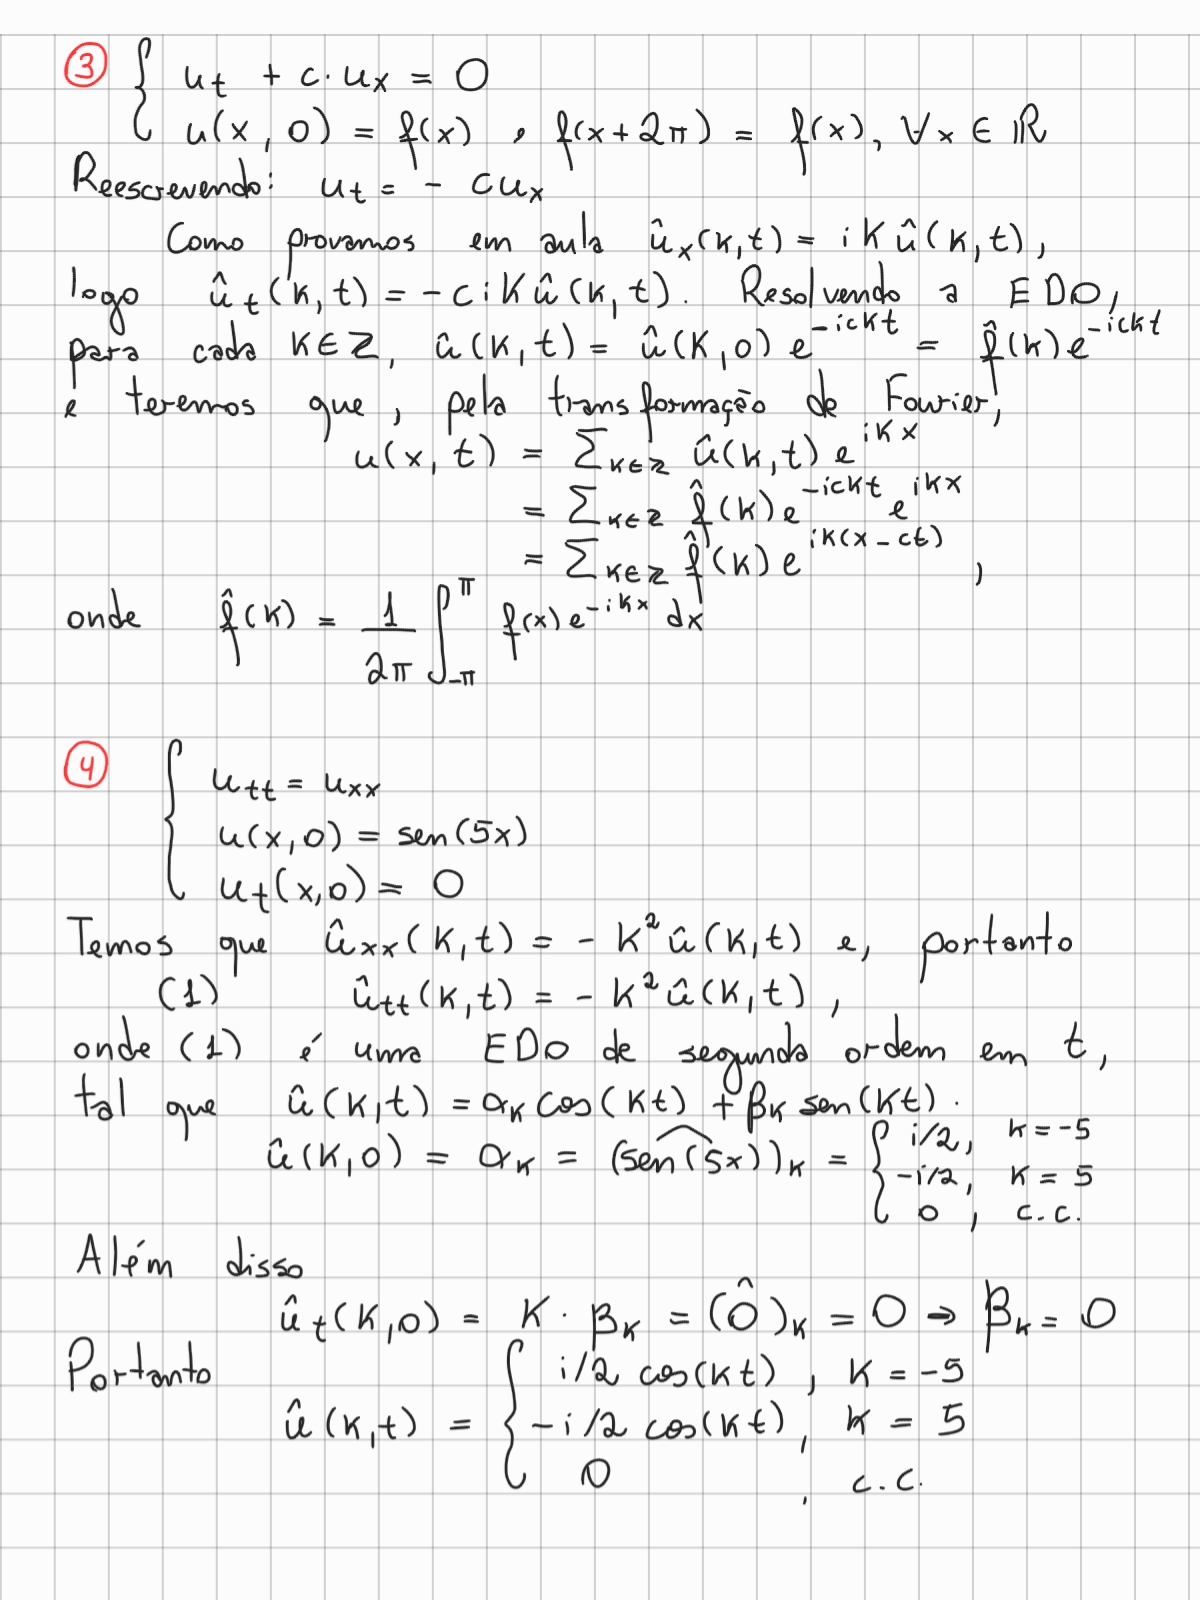 ③ { u_t + c · u_x = 0
u(x, 0) = f(x) , f(x+2π) = f(x), ∀x ∈ ℝ
Reescrevendo: u_t = - cu_x
Como provamos em aula û_x(k,t) = i k û(k,t),
logo û_t(k,t) = -c i k û(k,t). Resolvendo a EDO,
para cada k∈Z, û(k,t) = û(k,0) e^{-ickt} = f̂(k)e^{-ickt}
e teremos que, pela transformação de Fourier,
u(x,t) = Σ_{k∈Z} û(k,t) e^{ikx}
= Σ_{k∈Z} f̂(k) e^{-ickt} e^{ikx}
= Σ_{k∈Z} f̂(k) e^{ik(x-ct)} ,
onde f̂(k) = 1/2π ∫_{-π}^{π} f(x) e^{-ikx} dx
④ { u_tt = u_xx
u(x,0) = sen(5x)
u_t(x,0) = 0
Temos que û_xx(k,t) = - k² û(k,t) e, portanto
(1) û_tt(k,t) = - k² û(k,t) ,
onde (1) é uma EDO de segunda ordem em t,
tal que û(k,t) = α_k cos(kt) + β_k sen(kt).
û(k,0) = α_k = (sen(5x))^_k = { i/2, k = -5
-i/2, k = 5
0 , c.c.
Além disso
û_t(k,0) = k · β_k = (0̂)_k = 0 → β_k = 0
Portanto
û(k,t) = { i/2 cos(kt) , k = -5
-i/2 cos(kt) , k = 5
0 , c.c.